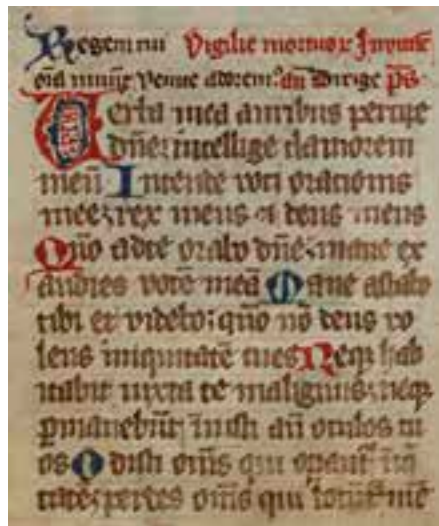 Regem cui Vigilie mortuoꝝ Inuitat
oĩa uiuũt Venite adorem⁹ añ Dirige p̃s
Verba mea auribus percipe
dñe: intellige clamorem
meũ Intende voci orationis
mee: rex meus et deus meus
Qm̃o ad te orabo dñe: mane ex
audies vocẽ meã Mane astabo
tibi et videbo: qm̃o nõ deus vo
lens iniquitatẽ tu es Neqꝫ hab
itabit iuxta te malignus: neqꝫ
ꝑmanebũt iniusti añ oculos tu
os Odisti om̃s qui operant̃ iniq
tatẽ: perdes om̃s qui locunt̃ mẽ